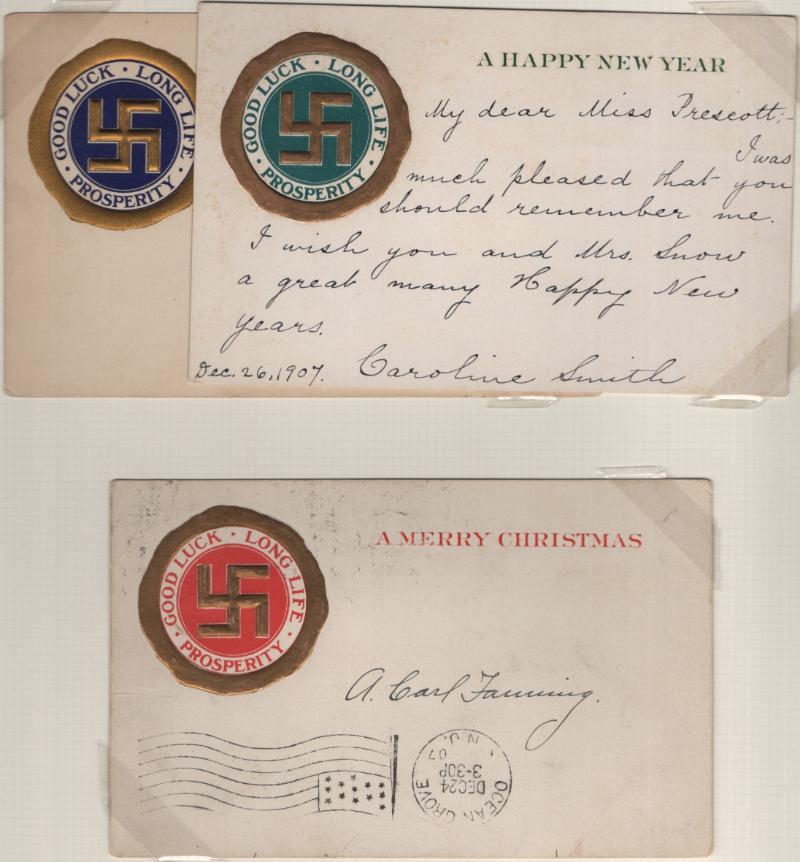 GOOD LUCK · LONG LIFE · PROSPERITY ·
GOOD LUCK · LONG LIFE · PROSPERITY ·
A HAPPY NEW YEAR
My dear Miss Prescott:-
I was
much pleased that you
should remember me.
I wish you and Mrs. Snow
a great many Happy New
years.
Dec. 26, 1907. Caroline Smith
GOOD LUCK · LONG LIFE · PROSPERITY ·
A MERRY CHRISTMAS
A. Carl Fanning.
OCEAN GROVE
DEC 24
3-30P
07
N.J.